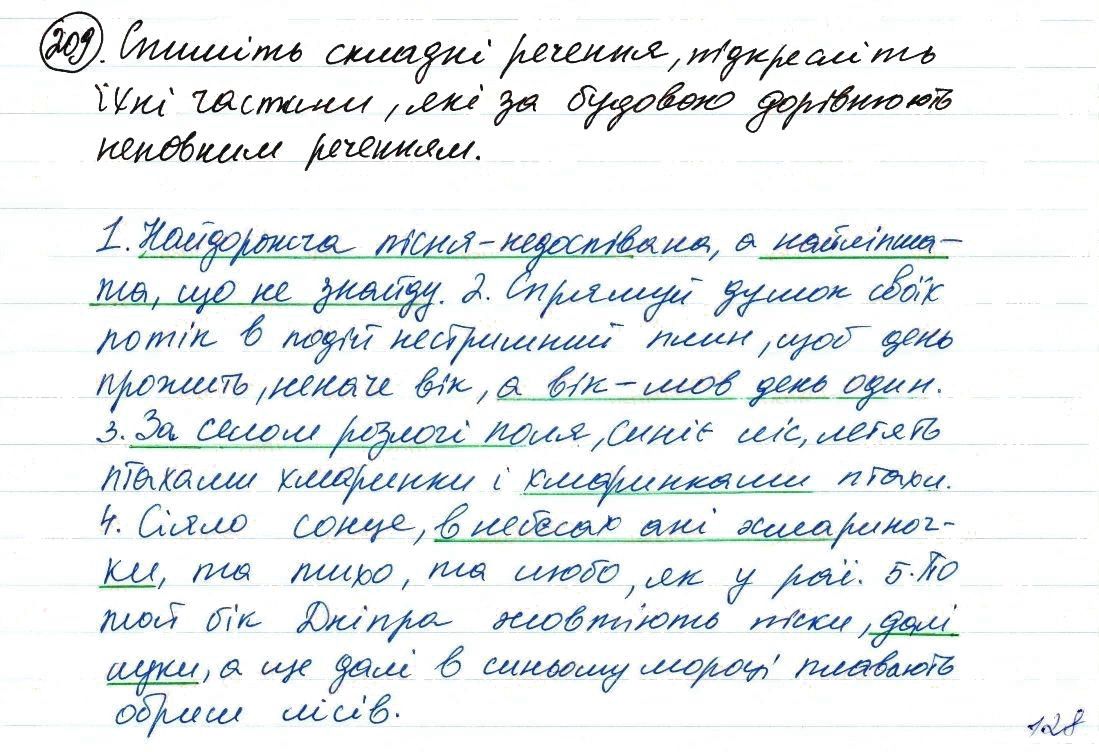 209. Спишіть складні речення, підкресліть
їхні частини, які за будовою дорівнюють
неповним реченням.
1. Найдорожча пісня-недоспівана, а найліпша-
та, що не знайду. 2. Спрямуй думок своїх
потік в подій нестримний плин, щоб день
прожить, неначе вік, а вік-мов день один.
3. За селом розлогі поля, синіє ліс, летять
птахами хмаринки і хмаринками птахи.
4. Сіяло сонце, в небесах ані хмариноч-
ки, та тихо, та любо, як у раї. 5. По
той бік Дніпра жовтіють піски, далі
луки, а ще далі в синьому мороці плавають
обриси лісів.
128